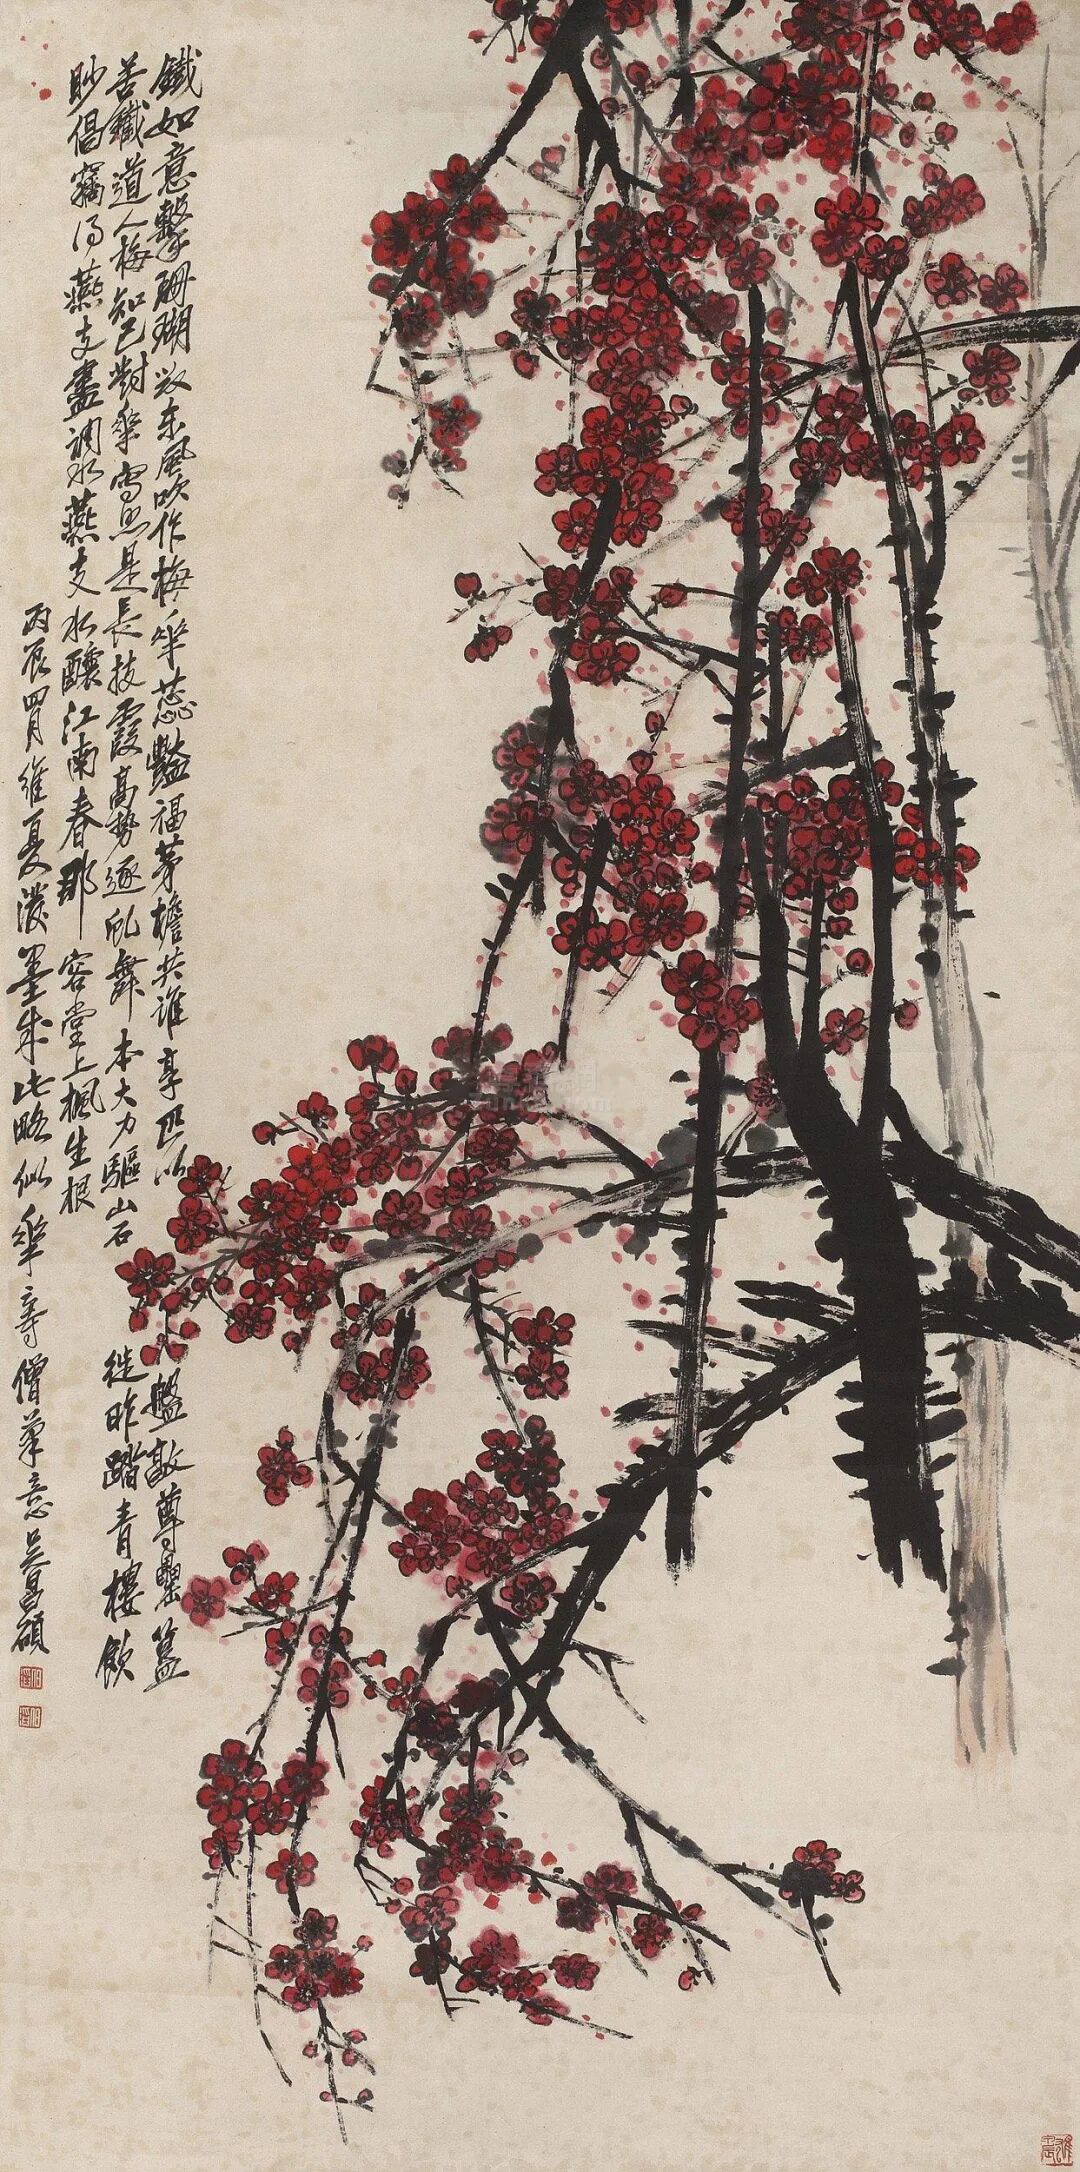 鐵如意擊珊瑚毀東風吹作梅華蕊豔福茅檐共誰享匹以盤敦尊罍簋
苦鐵道人梅知己對華寫照是長技霞高勢逐虬舞本大力驅山石徙昨踏青樓飲
眇倡竊得燕支盡調水燕支水釀江南春那容堂上楓生根
丙辰四月維夏潑墨成此略似華壽僧筆意吳昌碩